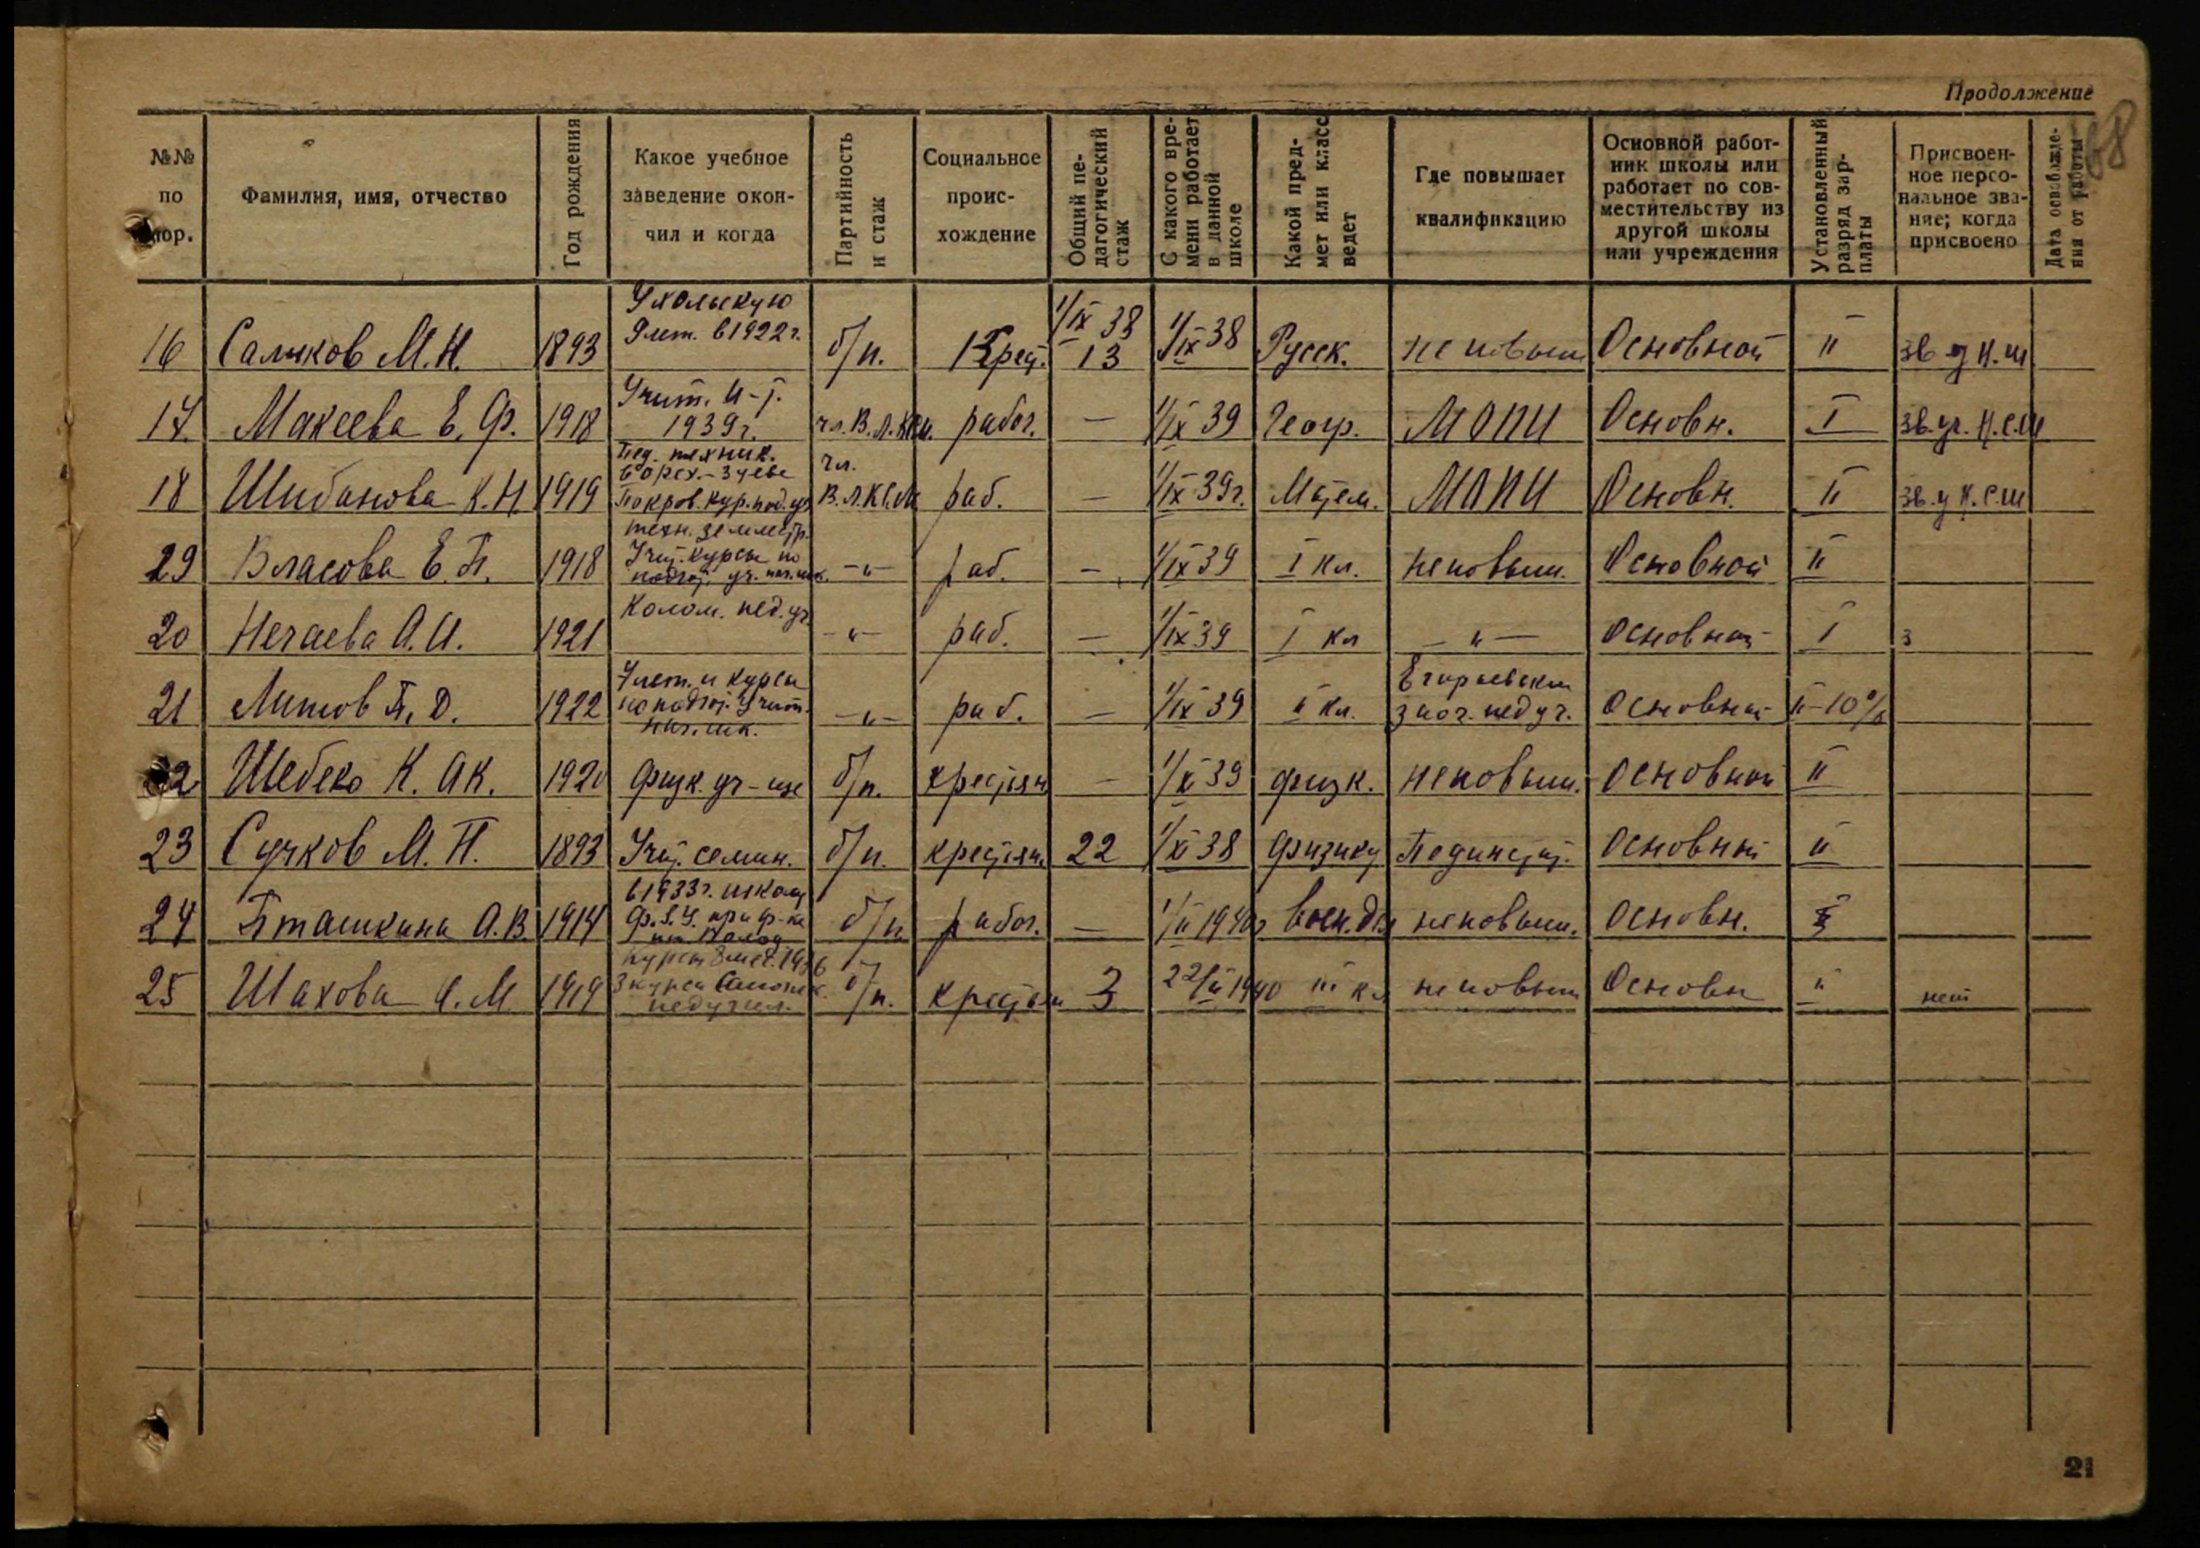 Продолжение
68
№№ по пор.
Фамилия, имя, отчество
Год рождения
Какое учебное заведение окончил и когда
Партийность и стаж
Социальное происхождение
Общий педагогический стаж
С какого времени работает в данной школе
Какой предмет или класс ведет
Где повышает квалификацию
Основной работник школы или работает по совместительству из другой школы или учреждения
Установленный разряд зарплаты
Присвоенное персональное звание; когда присвоено
Дата освобождения от работы
16 М.Н. 1893 9 лет. в 1922 г. б/п. Крест. 1/IX 38 13 1/IX 38 Русск. не повыш Основной II зв у Н.Ш
17 Макеева Е. Ф. 1918 Учит. И-т. 1939 г. чл. В.Л.К.С.М. рабоч. — 1/IX 39 Геогр. МОПИ Основн. I зв. уч. Н.С.Ш
18 Шибанова К.Н 1919 Пед. техник. в Орех.-Зуеве Покров. кур. под. уч чл. В.Л.КСМ раб. — 1/IX 39 г. Матем. МОПИ Основн. II зв. у Н.С.Ш
29 Власова Е. П. 1918 техн. землестр. Учит. курсы по подгот. уч. нач. шк. -"- раб. — 1/IX 39 I кл. не повыш. Основной II
20 Нечаева А. И. 1921 Колом. пед. уч -"- раб. — 1/IX 39 I кл -"- Основной I з
21 П. Д. 1922 7 лет. и курсы по подгот. Учит. нач. шк. -"- раб. — 1/IX 39 II кл. Егорьевский заоч. пед уч. Основной II-10%
22 Шебеко К. Ак. 1920 Физк. уч-ще б/п. крестьян — 1/XI 39 физк. не повыш. Основной II
23 Сучков М. П. 1893 Учит. семин. б/п. крестьян. 22 1/XI 38 Физику Пединстит. Основной II
24 Пташкина А.В. 1914 в 1933 г. школу Ф.З.У. при ф-ке б/п рабоч. — 1/II 1940 г воен. д. не повыш. Основн.
25 Шахова М. 1919 3 курса педучил. б/п. крестьян 3 22/II 1940 III кл не повыш Основн II нет
21